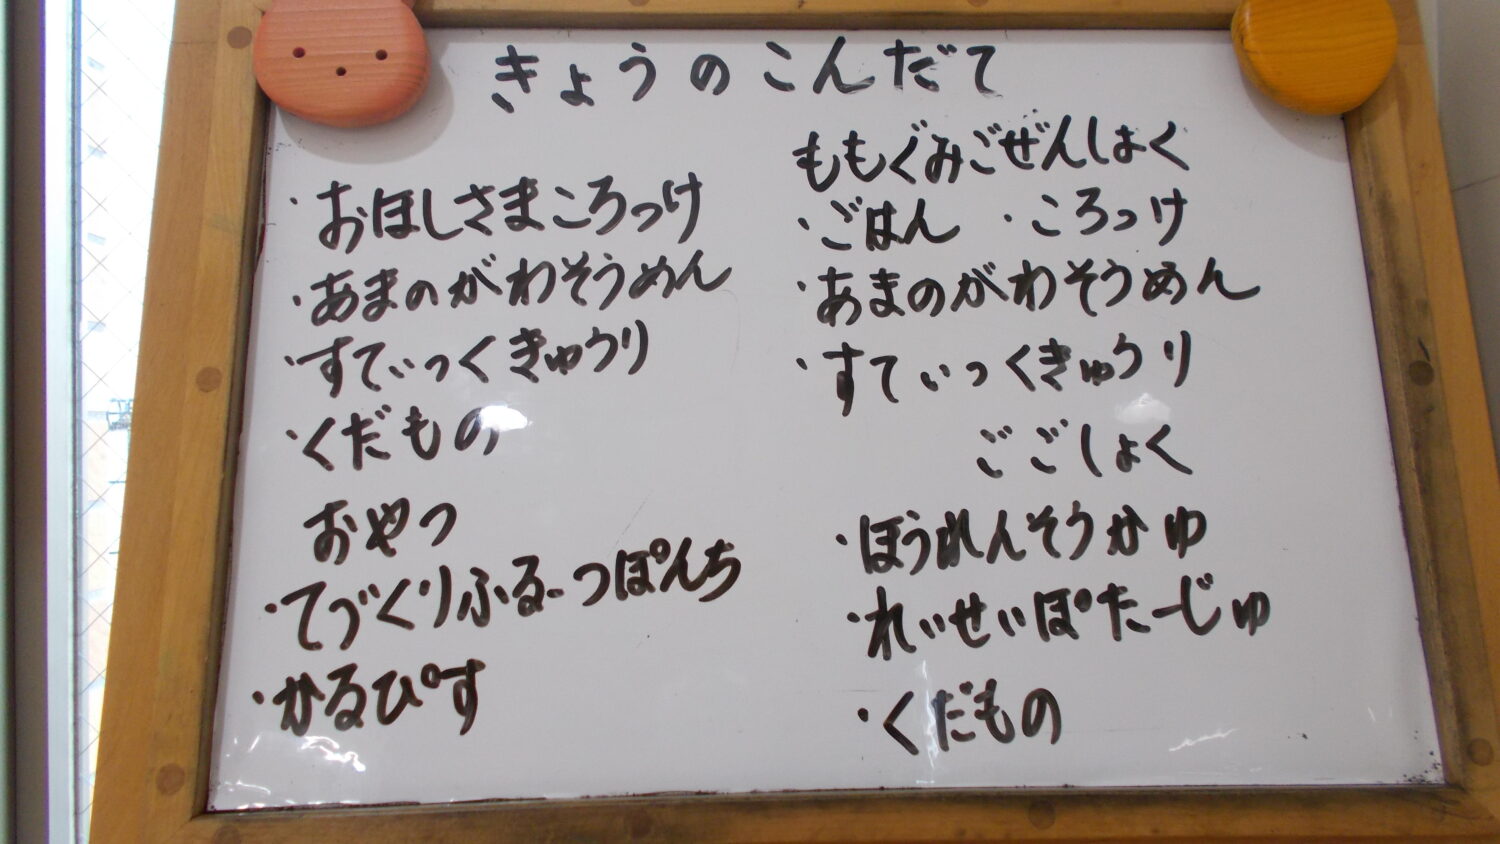 きょうのこんだて
・おほしさまころっけ
・あまのがわそうめん
・すてぃっくきゅうり
・くだもの
おやつ
・てづくりふるーつぽんち
・かるぴす
ももぐみごぜんしょく
・ごはん ・ころっけ
・あまのがわそうめん
・すてぃっくきゅうり
ごごしょく
・ほうれんそうかゆ
・れいせいぽたーじゅ
・くだもの